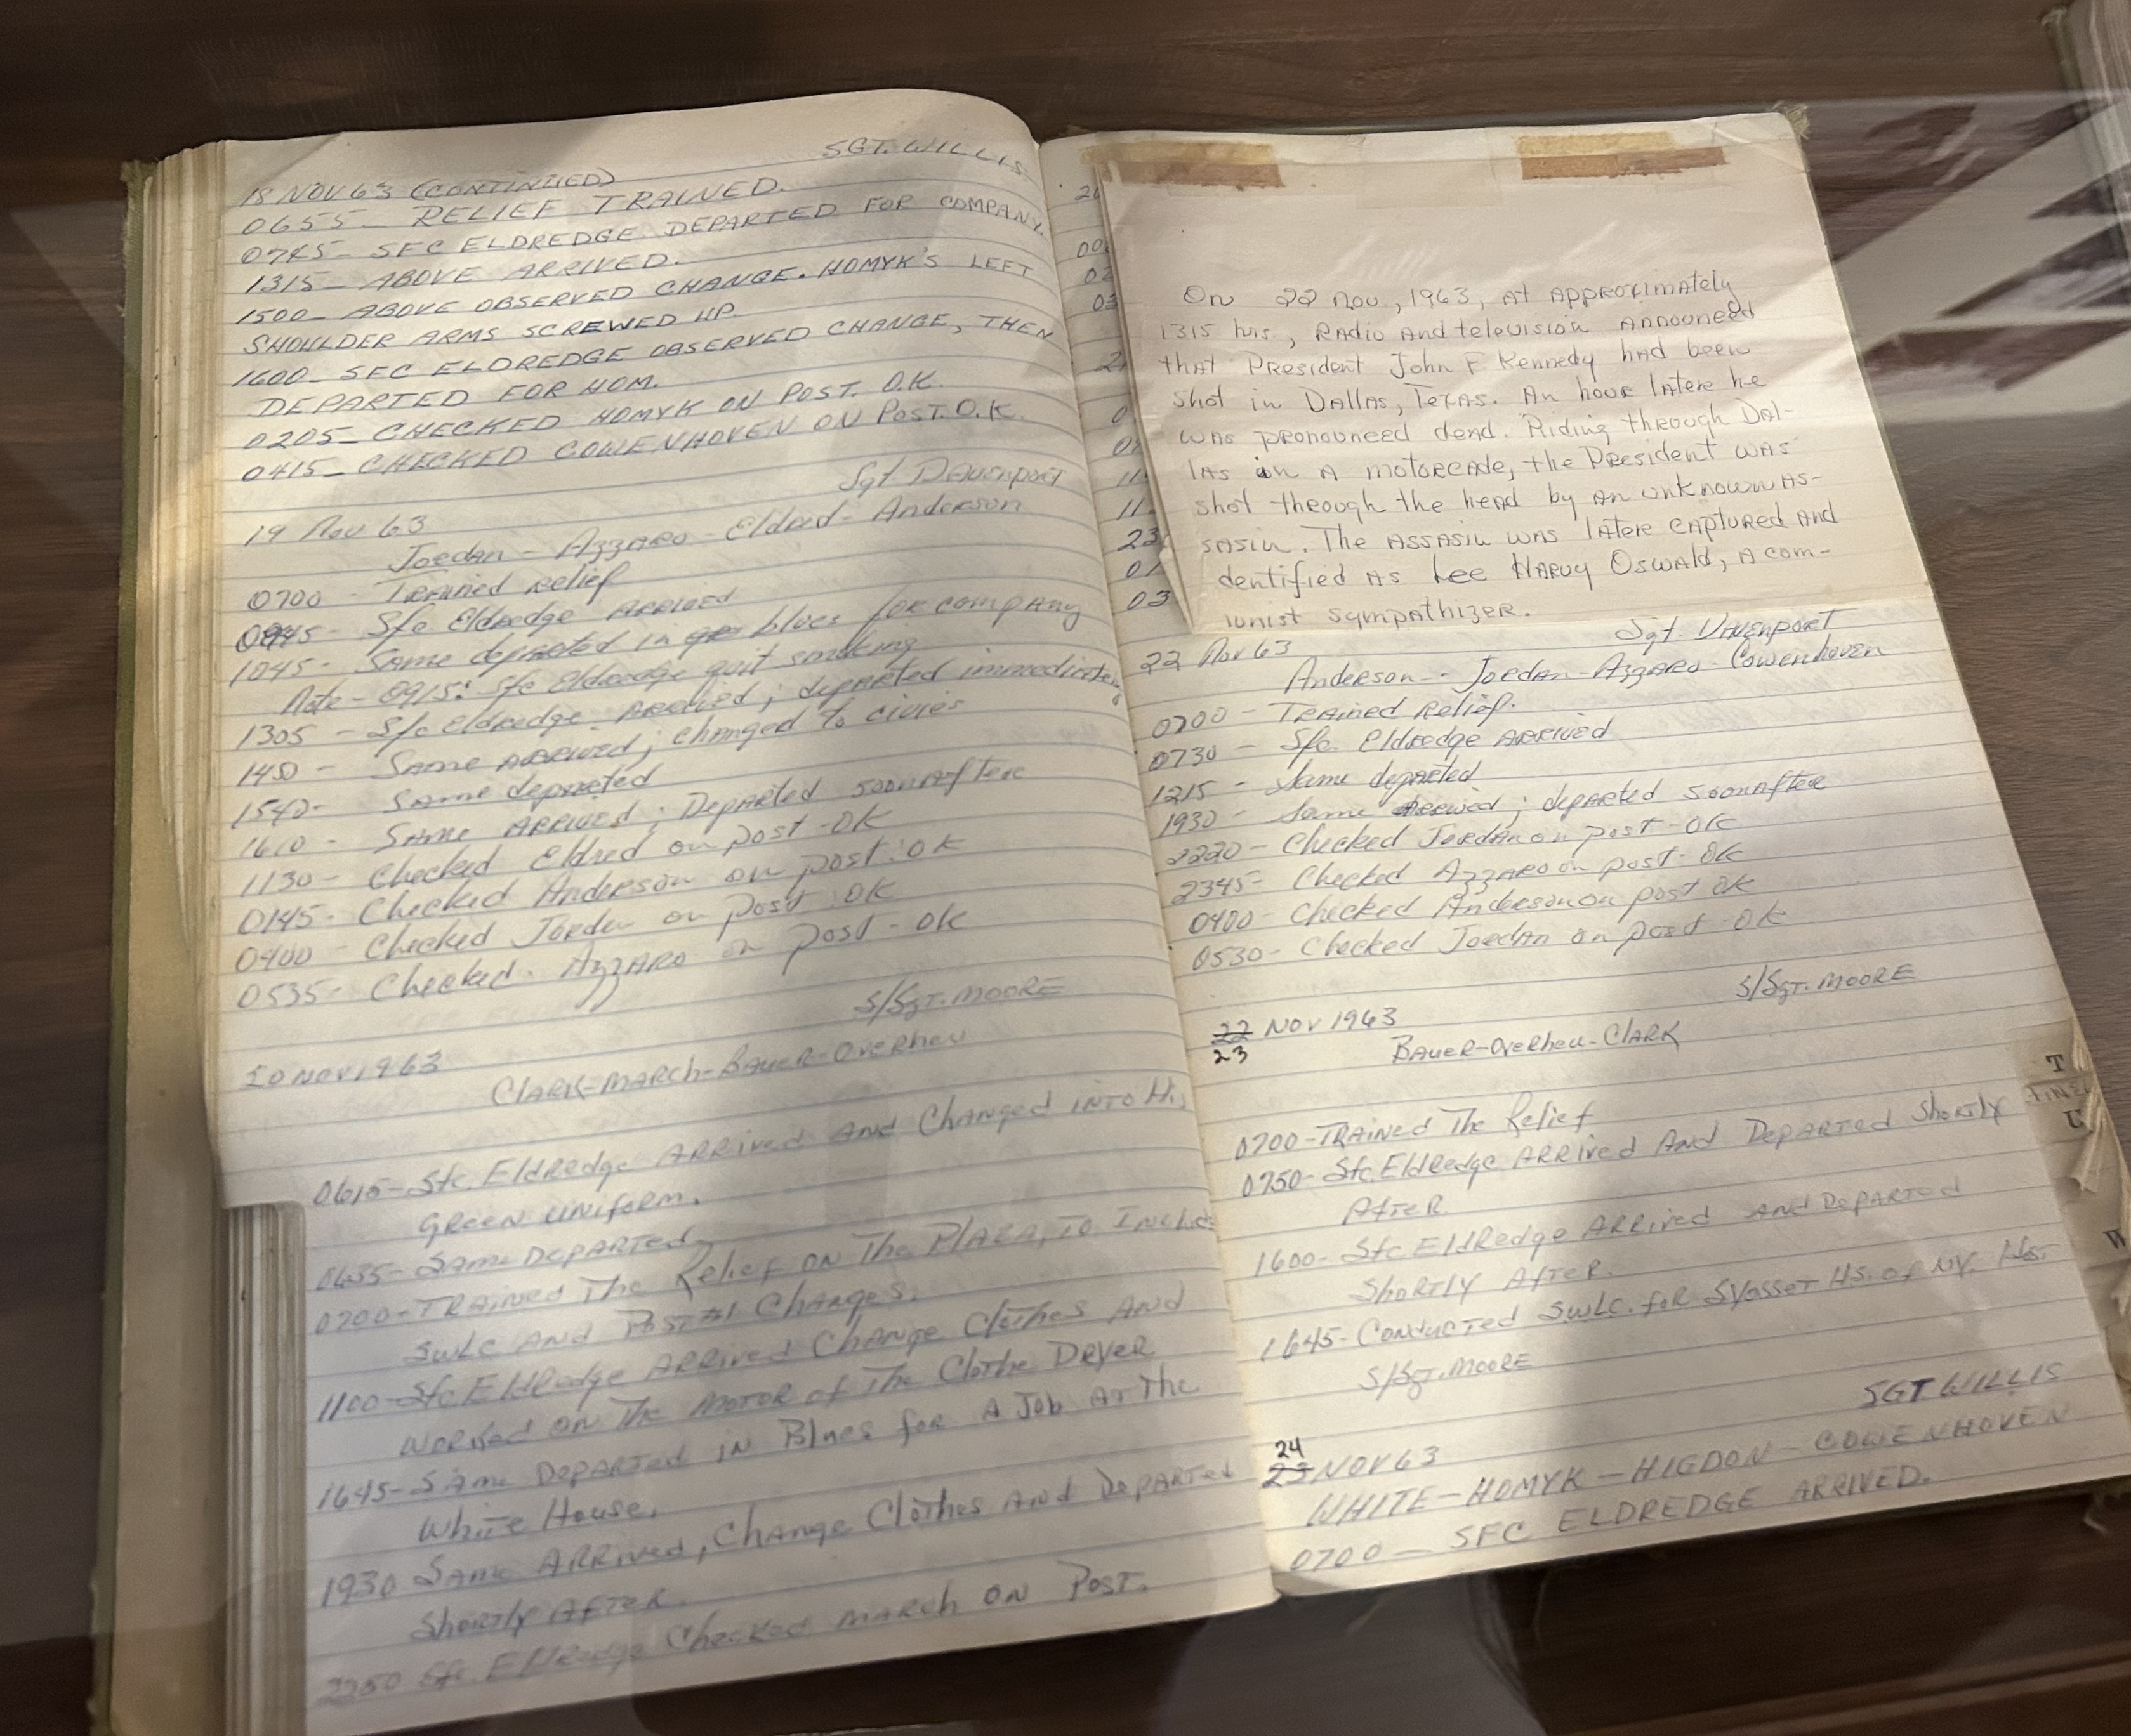 SGT. WILLIS
18 NOV 63 (CONTINUED)
0655 — RELIEF TRAINED.
0745 — SFC ELDREDGE DEPARTED FOR COMPANY.
1315 — ABOVE ARRIVED.
1500 — ABOVE OBSERVED CHANGE. HOMYK'S LEFT
SHOULDER ARMS SCREWED UP.
1600 — SFC ELDREDGE OBSERVED CHANGE, THEN
DEPARTED FOR HOM.
0205 — CHECKED HOMYK ON POST. O.K.
0415 — CHECKED COWENHOVEN ON POST. O.K.
Sgt Davenport
19 Nov 63
Jordan - Azzaro - Eldred - Anderson
0700 - Trained relief
0845 - Sfc Eldredge Arrived
1045 - Same departed in blues for company
Note - 0915: Sfc Eldredge quit smoking
1305 - Sfc Eldredge arrived; departed immediately
1450 - Same arrived; changed to civies
1540 - Same departed
1610 - Same Arrived; Departed soon after
1130 - Checked Eldred on post - OK
0145 - Checked Anderson on post: OK
0400 - Checked Jorden on post: OK
0535 - Checked. Azzaro on post - OK
S/Sgt. MOORE
20 NOV 1963
Clark-March-Bauer-Overheu
0615 - Sfc. Eldredge Arrived and Changed into His
Green uniform.
0635 - Same Departed
0700 - Trained The Relief on The Plaza, To Include
SWLC and Postal Changes.
1100 - Sfc Eldredge Arrived Change Clothes And
Worked on the Motor of The Clothe Dryer
1645 - Same Departed in Blues for A Job At The
White House.
1930 Same Arrived, Change Clothes And Departed
Shortly After.
2250 Sfc. Eldredge Checked March on Post.
On 22 Nov., 1963, at approximately
1315 hrs., Radio and television announced
that President John F Kennedy had been
shot in Dallas, Texas. An hour later he
was pronounced dead. Riding through Dal-
las in a motorcade, the President was
shot through the head by an unknown as-
sasin. The assasin was later captured and
dentified as Lee Harvy Oswald, a com-
unist sympathizer.
00
02
03
0
11
11
23
01
03
Sgt. Davenport
22 Nov 63
Anderson - Jordan - Azzaro - Cowenhoven
0700 - Trained Relief.
0730 - Sfc. Eldredge Arrived
1215 - Same departed
1930 - Same Arrived; departed soon after
2220 - Checked Jordan on post - OK
2345 - Checked Azzaro on post - OK
0400 - Checked Anderson on post OK
0530 - Checked Jordan on post - OK
S/Sgt. MOORE
22 NOV 1963
23
Bauer-Overheu-Clark
0700 - Trained The Relief
0750 - Sfc. Eldredge Arrived And Departed Shortly
After.
1600 - Sfc Eldredge Arrived and Departed
Shortly After.
1645 - Conducted SWLC. for Syosset HS. of NY.
S/Sgt. MOORE
SGT WILLIS
24
23 NOV 63
WHITE — HOMYK — HIGDON — COWENHOVEN
0700 — SFC ELDREDGE ARRIVED.
T
U
W